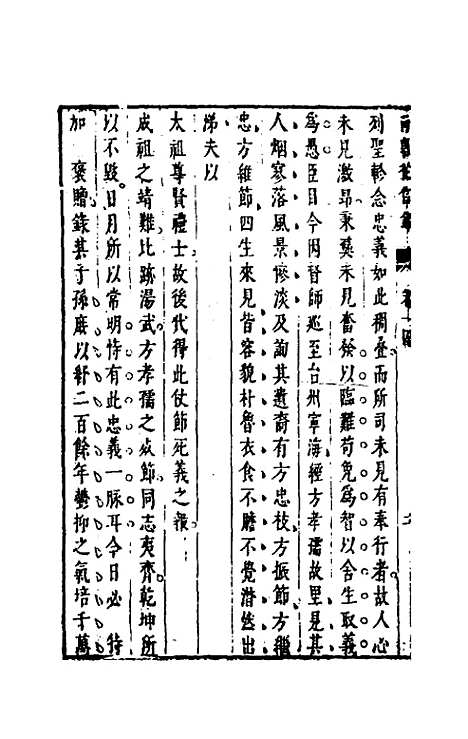 列聖軫念忠義如此稠疊而所司未見有奉行者故人心
未見激昂秉彝未見奮發以臨難苟免為智以舍生取義
為愚臣目今因督師巡至台州寧海經方孝孺故里見其
人烟寥落風景慘淡及詢其遺裔有方忠枝方振節方繼
忠方維節四生來見皆容貌朴魯衣食不贍不覺潸然出
涕夫以
太祖尊賢禮士故後代得此仗節死義之報
成祖之靖難比跡湯武方孝孺之死節同志夷齊乾坤所
以不毀日月所以常明恃有此忠義一脉耳今日必 特
加 褒贈錄其子孫庶以紓二百餘年鬱抑之氣培千萬